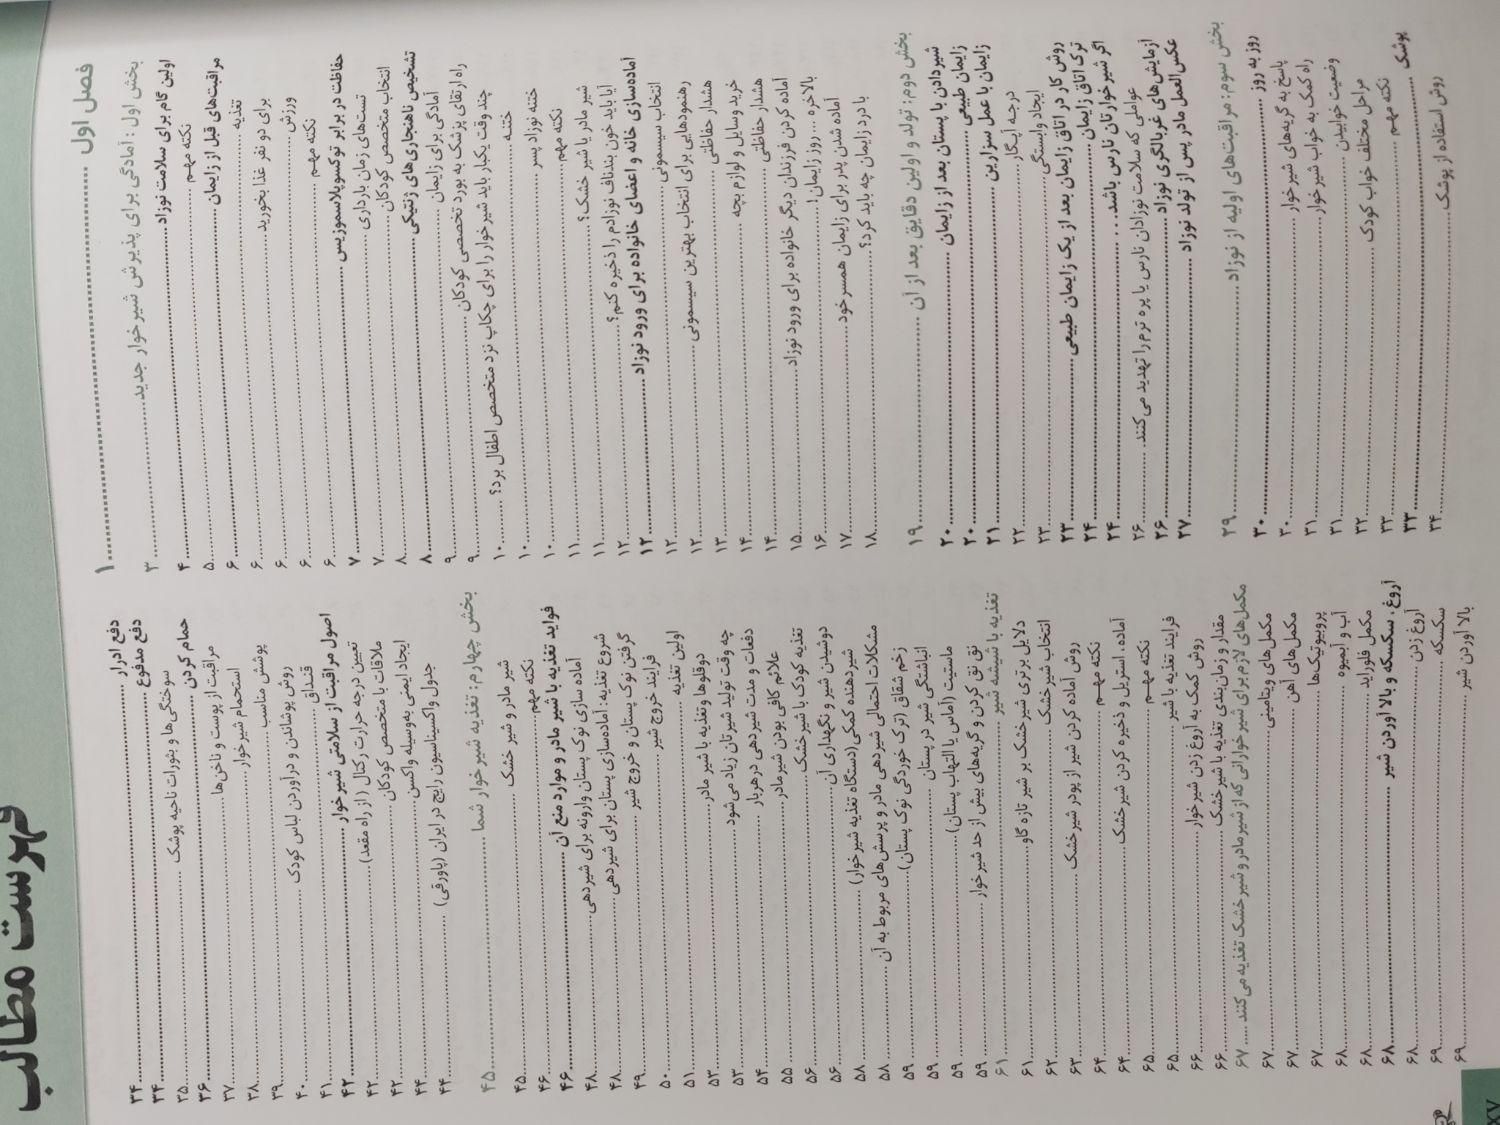 فهرست مطالب
فصل اول ........ ۱
بخش اول: آمادگی برای پذیرش شیرخوار جدید ........ ۳
اولین گام برای سلامت نوزاد ........ ۴
نکته مهم ........ ۵
مراقبت‌های قبل از زایمان ........ ۶
تغذیه ........ ۶
برای دو نفر غذا بخورید ........ ۶
ورزش ........ ۶
نکته مهم ........ ۶
حفاظت در برابر توکسوپلاسموزیس ........ ۷
تست‌های زمان بارداری ........ ۷
انتخاب متخصص کودکان ........ ۸
تشخیص ناهنجاری‌های ژنتیکی ........ ۸
آمادگی برای زایمان ........ ۹
راه ارتقای پزشک به بورد تخصصی کودکان ........ ۹
چند وقت یکبار باید شیرخوار را برای چکاپ نزد متخصص اطفال برد؟ ........ ۱۰
ختنه ........ ۱۰
ختنه نوزاد پسر ........ ۱۰
نکته مهم ........ ۱۱
شیر مادر یا شیر خشک؟ ........ ۱۱
آیا باید خون بندناف نوزادم را ذخیره کنم؟ ........ ۱۲
آماده‌سازی خانه و اعضای خانواده برای ورود نوزاد ........ ۱۲
انتخاب سیسمونی ........ ۱۲
رهنمودهایی برای انتخاب بهترین سیسمونی ........ ۱۲
هشدار حفاظتی ........ ۱۳
خرید وسایل و لوازم بچه ........ ۱۴
هشدار حفاظتی ........ ۱۴
آماده کردن فرزندان دیگر خانواده برای ورود نوزاد ........ ۱۵
بالاخره ... روز زایمان! ........ ۱۶
آماده شدن پدر برای زایمان همسر خود ........ ۱۷
با درد زایمان چه باید کرد؟ ........ ۱۸
بخش دوم: تولد و اولین دقایق بعد از آن ........ ۱۹
شیردادن با پستان بعد از زایمان ........ ۲۰
زایمان طبیعی ........ ۲۰
زایمان با عمل سزارین ........ ۲۱
درجه آپگار ........ ۲۲
ایجاد وابستگی ........ ۲۳
روش کار در اتاق زایمان بعد از یک زایمان طبیعی ........ ۲۳
ترک اتاق زایمان ........ ۲۴
اگر شیرخوارتان نارس باشد ........ ۲۴
عواملی که سلامت نوزادان نارس یا پره ترم را تهدید می‌کنند ........ ۲۶
آزمایش‌های غربالگری نوزاد ........ ۲۶
عکس‌العمل مادر پس از تولد نوزاد ........ ۲۷
بخش سوم: مراقبت‌های اولیه از نوزاد ........ ۲۹
روز به روز ........ ۳۰
پاسخ به گریه‌های شیرخوار ........ ۳۰
راه کمک به خواب شیرخوار ........ ۳۱
وضعیت خوابیدن ........ ۳۱
مراحل مختلف خواب کودک ........ ۳۲
نکته مهم ........ ۳۳
پوشک ........ ۳۳
روش استفاده از پوشک ........ ۳۴
دفع ادرار ........ ۳۴
دفع مدفوع ........ ۳۴
سوختگی‌ها و بثورات ناحیه پوشک ........ ۳۵
حمام کردن ........ ۳۶
مراقبت از پوست و ناخن‌ها ........ ۳۷
استحمام شیرخوار ........ ۳۸
پوشش مناسب ........ ۳۹
روش پوشاندن و درآوردن لباس کودک ........ ۴۰
قنداق ........ ۴۱
اصول مراقبت از سلامتی شیرخوار ........ ۴۲
تعیین درجه حرارت رکتال (از راه مقعد) ........ ۴۲
ملاقات با متخصص کودکان ........ ۴۲
ایجاد ایمنی به‌وسیله واکسن ........ ۴۴
جدول واکسیناسیون رایج در ایران (پاورقی) ........ ۴۴
بخش چهارم: تغذیه شیرخوار شما ........ ۴۵
شیر مادر و شیر خشک ........ ۴۵
نکته مهم ........ ۴۶
فواید تغذیه با شیر مادر و موارد منع آن ........ ۴۶
آماده سازی نوک پستان وارونه برای شیردهی ........ ۴۸
شروع تغذیه: آماده‌سازی پستان برای شیردهی ........ ۴۸
گرفتن نوک پستان و خروج شیر ........ ۴۹
فرایند خروج شیر ........ ۵۰
اولین تغذیه ........ ۵۱
دوقلوها و تغذیه با شیر مادر ........ ۵۳
چه وقت تولید شیرتان زیاد می‌شود ........ ۵۳
دفعات و مدت شیردهی در هر بار ........ ۵۴
علائم کافی بودن شیر مادر ........ ۵۵
تغذیه کودک با شیرخشک ........ ۵۶
دوشیدن شیر و نگهداری آن ........ ۵۶
شیردهنده کمکی (دستگاه تغذیه شیرخوار) ........ ۵۸
مشکلات احتمالی شیردهی مادر و پرسش‌های مربوط به آن ........ ۵۸
زخم شقاق (ترک خوردگی نوک پستان) ........ ۵۹
انباشتگی شیر در پستان ........ ۵۹
ماستیت (آماس یا التهاب پستان) ........ ۵۹
نق نق کردن و گریه‌های بیش از حد شیرخوار ........ ۵۹
تغذیه با شیشه شیر ........ ۶۱
دلایل برتری شیرخشک بر شیر تازه گاو ........ ۶۱
انتخاب شیرخشک ........ ۶۲
روش آماده کردن شیر از پودر شیرخشک ........ ۶۳
نکته مهم ........ ۶۴
آماده، استریل و ذخیره کردن شیرخشک ........ ۶۴
نکته مهم ........ ۶۵
فرایند تغذیه با شیر ........ ۶۵
روش کمک به آروغ زدن شیرخوار ........ ۶۶
مقدار و زمان‌بندی تغذیه با شیرخشک ........ ۶۶
مکمل‌های لازم برای شیرخوارانی که از شیر مادر و شیر خشک تغذیه می‌کنند ........ ۶۷
مکمل‌های ویتامینی ........ ۶۷
مکمل‌های آهن ........ ۶۷
پروبیوتیک‌ها ........ ۶۷
آب و آبمیوه ........ ۶۸
مکمل فلوراید ........ ۶۸
آروغ، سکسکه و بالا آوردن شیر ........ ۶۸
آروغ زدن ........ ۶۸
سکسکه ........ ۶۹
بالا آوردن شیر ........ ۶۹